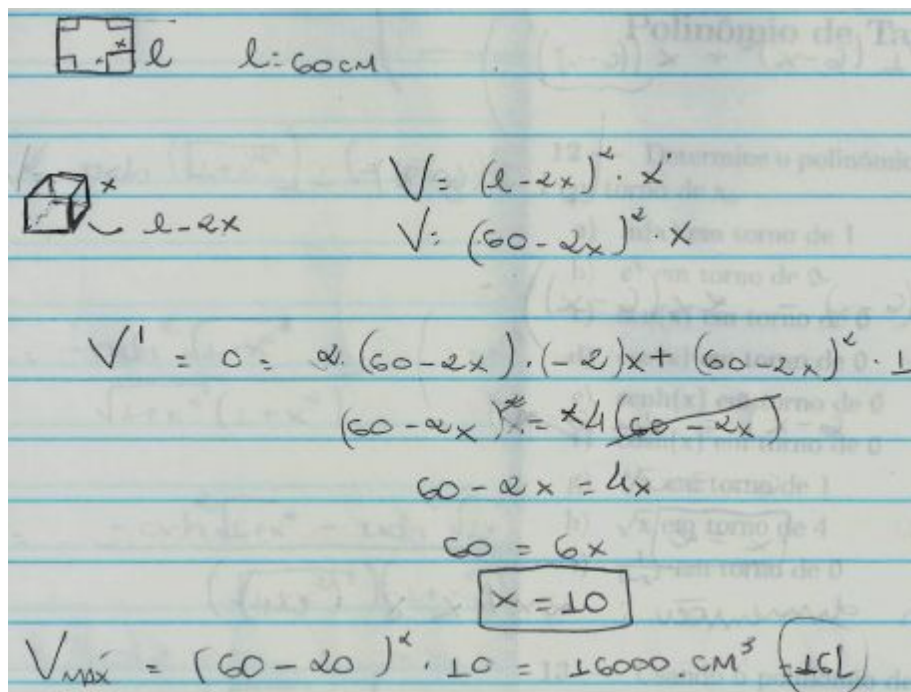 x l l = 60 cm
x
l - 2x
V = (l - 2x)² · x
V = (60 - 2x)² · x
V' = 0 = 2 · (60 - 2x) · (-2)x + (60 - 2x)² · 1
(60 - 2x)² = x4(60 - 2x)
60 - 2x = 4x
60 = 6x
x = 10
Vmáx = (60 - 20)² · 10 = 16000 cm³ = 16L
Polinômio de Ta
12 Determine o polinômio
torno de x
em torno de 1
em torno de 0
em torno de 0
em torno de 0
senh(x) em torno de 0
em torno de 0
em torno de 1
h) √x em torno de 4
em torno de 0
13 o polinômio de